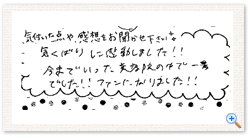 気付いた点や感想をお聞かせ下さい。
気くばりに感動しました!!
今までいった美容院の中で一番
でした!!ファンになりました!!